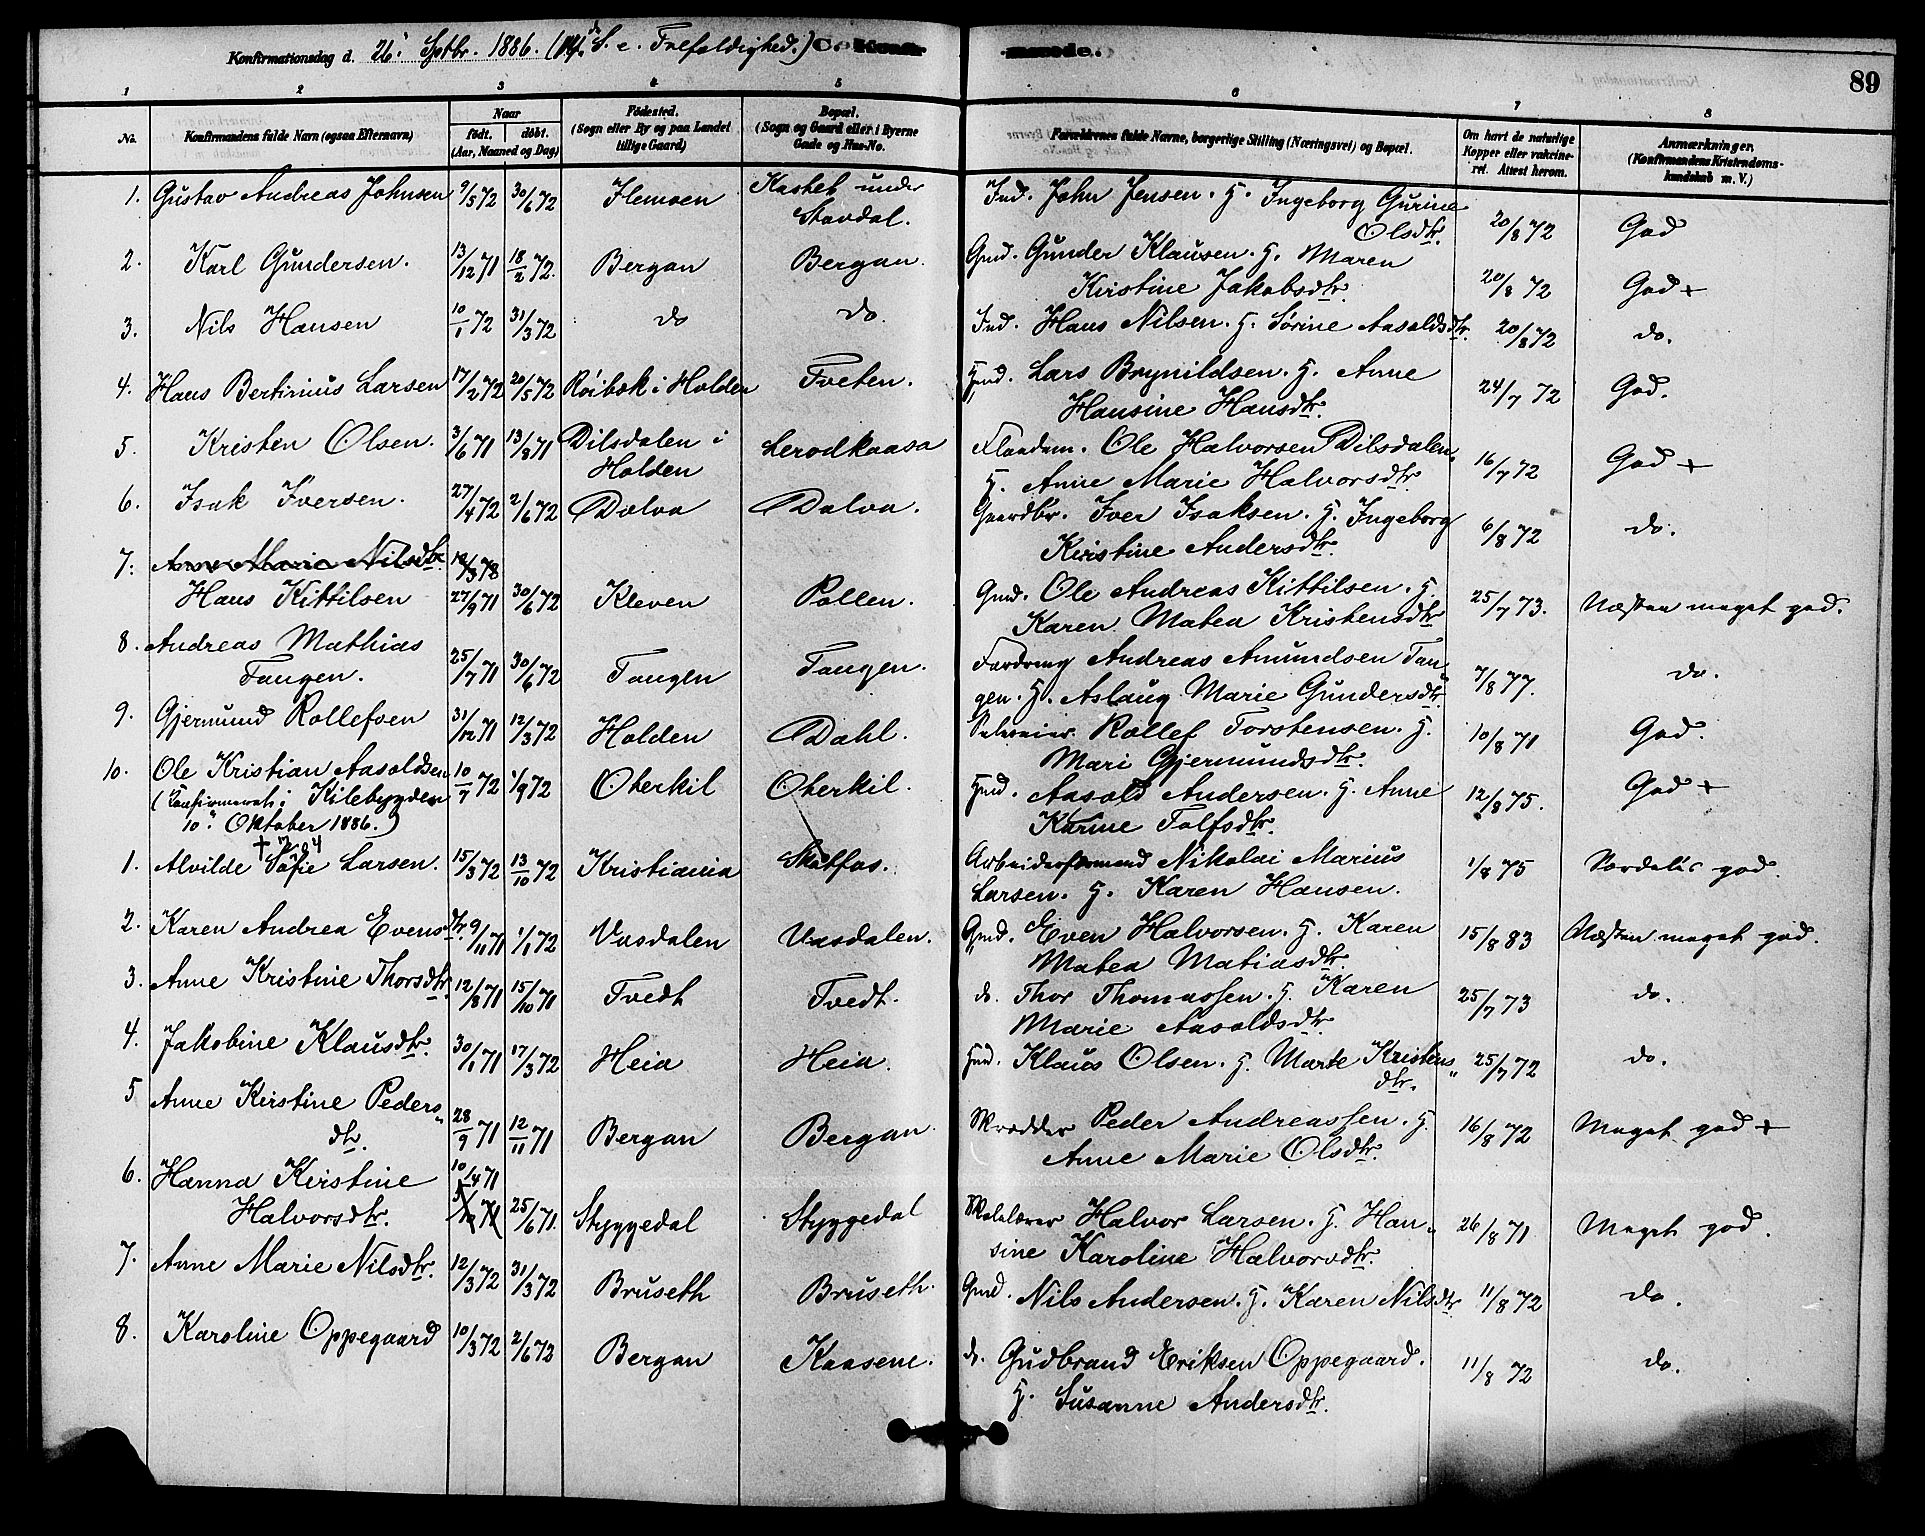 Konfirmationsdag d. 26' Sptbr. 1886. (14de S. e. Trefoldighed.) Konfir- merede.
89
1 2 3 4 5 6 7 8
No. Konfirmandens fulde Navn (ogsaa Efternavn) Naar født. døbt. (Aar, Maaned og Dag) Fødested. (Sogn eller By og paa Landet tillige Gaard) Bopæl. (Sogn og Gaard eller i Byerne Gade og Hus-No. Forældrenes fulde Navne, borgerlige Stilling (Næringsvei) og Bopæl. Om havt de naturlige Kopper eller vakcineret. Attest herom. Anmærkninger. (Konfirmandens Kristendomskundskab m. V.)
1. Gustav Andreas Johnsen 9/5 72 30/6 72 Hemoen Kastet under Stavdal. Ind. John Jensen. H. Ingeborg Gurine Olsdtr. 20/8 72 God
2. Karl Gundersen. 13/12 71 18/2 72. Bergan Bergan. Gmd. Gunder Klausen. H. Maren Kirstine Jakobsdtr. 20/8 72 God +
3. Nils Hansen 10/1 72 31/3 72 do do. Ind. Hans Nilsen. H. Sørine Aasoldsdtr. 20/8 72 do.
4. Hans Bertinius Larsen 17/2 72 20/5 72 Röibæk i Holden Tveten. Hmd. Lars Brynildsen. H. Anne Hansine Hansdtr. 24/7 72 God.
5. Kristen Olsen. 3/6 71 13/8 71 Dilsdalen i Holden Lerodkaasa Ole Halvorsen Dilsdalen. H. Anne Marie Halvorsdtr. 16/7 72 God +
6. Isak Iversen. 27/4 72 2/6 72 Dolva Dolva. Gaardbr. Iver Isaksen. H. Ingeborg Kirstine Andersdtr. 6/8 72 do.
7. Anne Marie Nilsdtr 12/3 72
Hans Kittilsen 27/9 71 30/6 72 Kleven Pollen. Gmd. Ole Andreas Kittilsen. H. Karen Matea Kristensdtr 25/7 73. Næsten meget god.
8. Andreas Mathias Tangen. 25/7 71 30/6 72 Tangen Tangen. Andreas Amundsen Tangen. H. Aslaug Marie Gundersdtr 7/8 77. do.
9. Gjermund Rollefsen 31/12 71 12/3 72 Holden Dahl. Selveier Rollef Torstensen. H. Mari Gjermundsdtr. 10/8 71 God.
10. Ole Kristian Aasoldsen 10/7 72 1/9 72 Oterkil Oterkil. Hmd. Aasold Andersen. H. Anne Karine Tolfsdtr. 12/8 75. God +
(Konfirmeret i Kilebygden
10' Oktober 1886.)
1. Alvilde Sofie Larsen. 15/3 72 13/10 72 Kristiania Skotfos. Arbeiderformand Nikolai Marius Larsen. H. Karen Hansen. 1/8 75 Særdeles god.
2. Karen Andrea Evensdtr. 9/11 71 1/1 72 Vasdalen Vasdalen. Gmd. Even Halvorsen. H. Karen Matea Matiasdtr. 15/8 83 Næsten meget god.
3. Anne Kristine Thorsdtr. 12/8 71 15/10 71 Tvedt Tvedt. do. Thor Thomassen. H. Karen Marie Aasoldsdtr. 25/7 73 do.
4. Jakobine Klausdtr. 30/1 71 17/3 72 Heia Heia. Hmd. Klaus Olsen. H. Marte Kristensdtr. 25/7 72 do.
5 Anne Kirstine Pedersdtr. 28/9 71 12/11 71 Bergan Bergan. Skrædder Peder Andreassen. H. Anne Marie Olsdtr. 16/8 72 Meget god +
6. Hanna Kirstine Halvorsdtr. 10/4 71 25/6 71. Styggedal Styggedal Skolelærer Halvor Larsen. H. Hansine Karoline Halvorsdtr. 26/8 71 Meget god.
7. Anne Marie Nilsdtr. 12/3 72 31/3 72 Bruseth Bruseth. Gmd. Nils Andersen. H. Karen Nilsdtr 11/8 72 do.
8. Karoline Oppegaard 10/3 72 2/6 72 Bergan Kaasene. do. Gudbrand Eriksen Oppegaard. H. Susanne Andersdtr. 11/8 72 do.